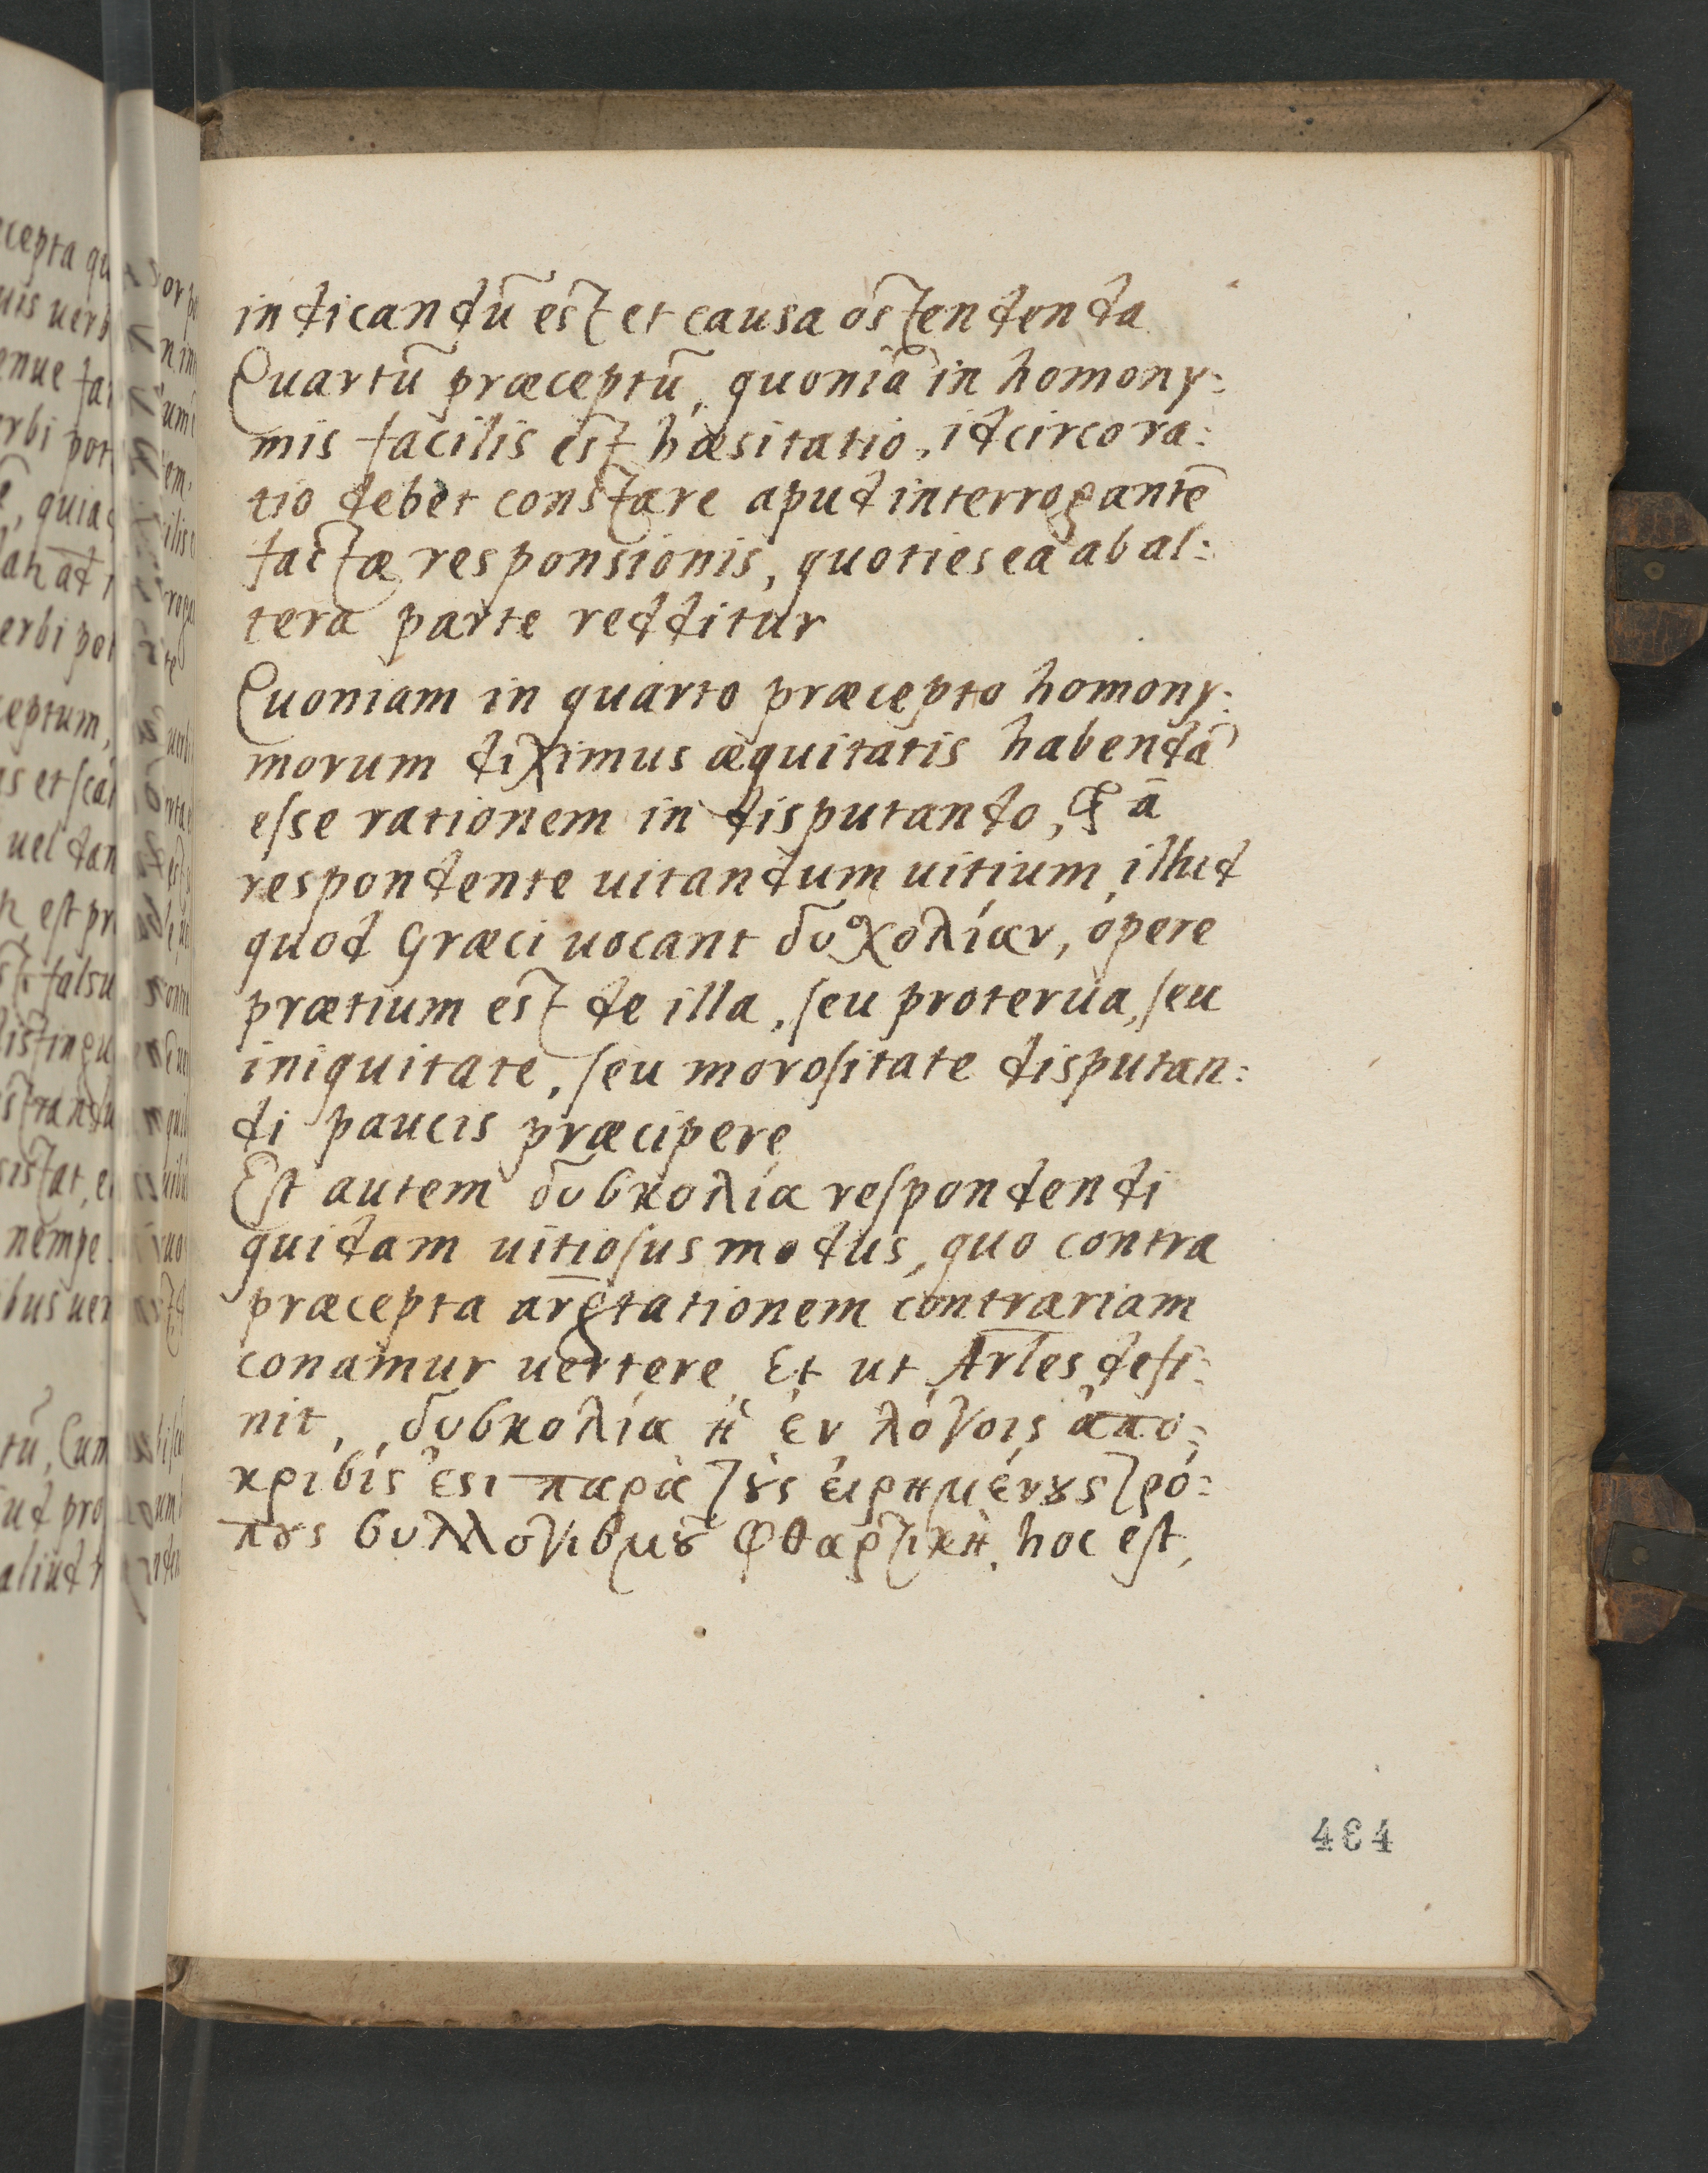 indicandū est et causa ostendenda
Quartū præceptū, quoniā in homony:
mis facilis est hæsitatio, idcirco ra:
tio debet constare apud interrogantē
factæ responsionis, quoties ea ab al:
tera parte redditur
Quoniam in quarto præcepto homony:
morum diximus æquitatis habendā
esse rationem in disputando, ā
respondente uitandum uitium illud
quod Græci uocant δυσχολίαν, operę
prætium est de illa, seu proterua, seu
iniquitate, seu morositate disputan:
di paucis præcipere
Est autem δυσκολία respondendi
quidam uitiosus modus, quo contra
præcepta argtationem contrariam
conamur uertere Et ut Arles defi:
nit, δυσκολία ἡ ἐν λόγοις ἀπο:
κρισίς ἐςι παρὰ τȣ̀ς εἰρημένȣς τρό:
πȣς συλλογισμȣ͂ φθαρτικὴ, hoc est,
434